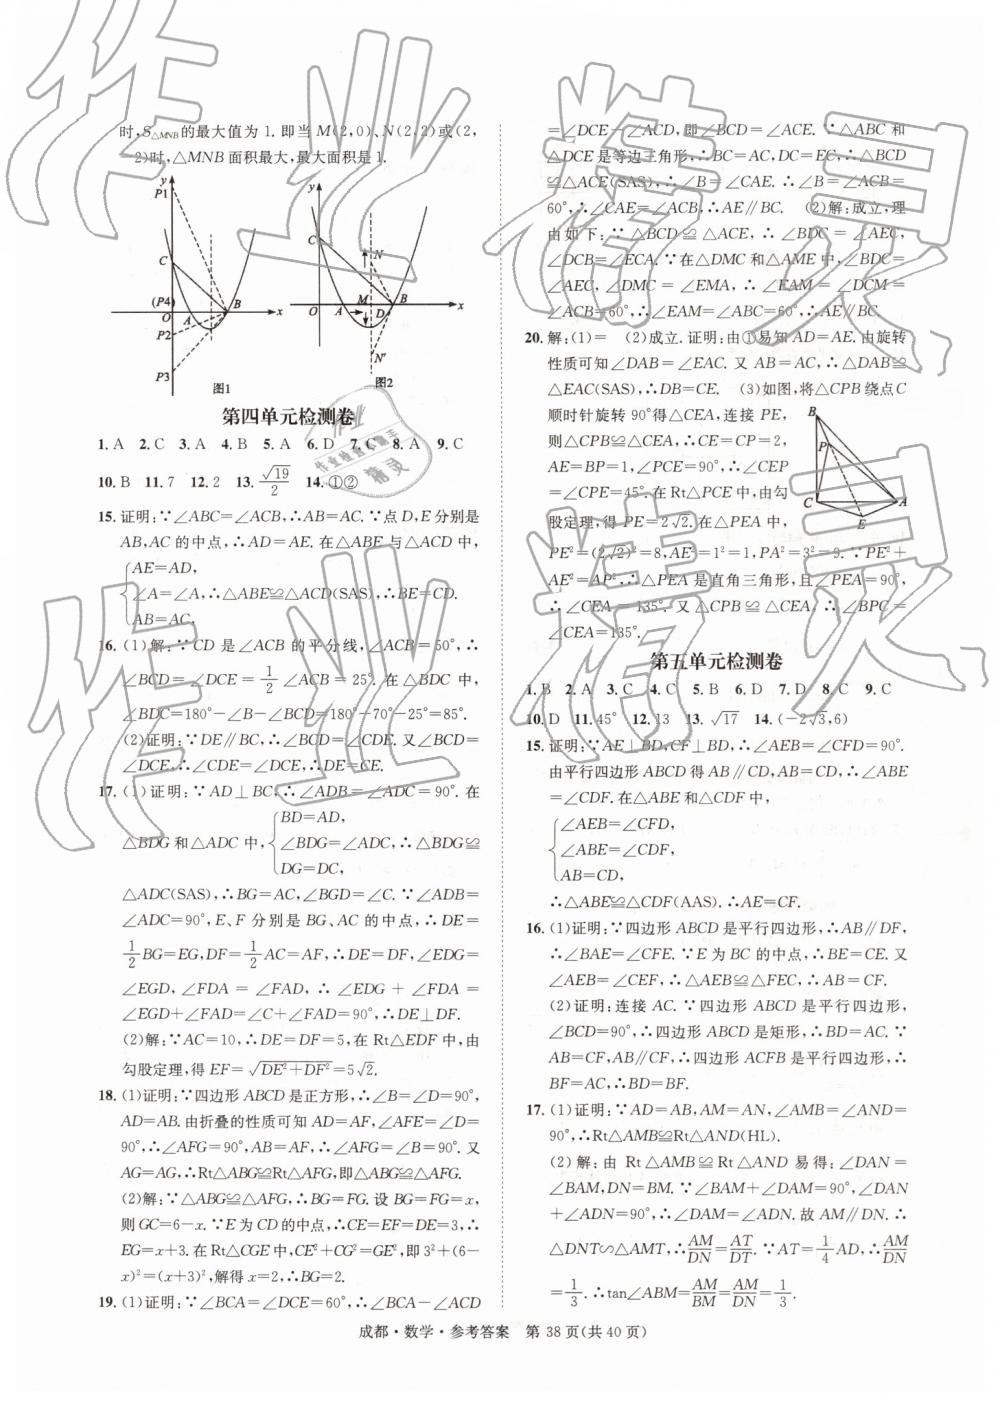 时,S△MNB的最大值为 1. 即当 M(2,0)、N(2,2)或(2,
-2)时,△MNB 面积最大,最大面积是 1.
y
P1
C
(P4)
O
A
B
x
P2
P3
图1
y
C
N
M
B
O
A
D
x
N′
图2
第四单元检测卷
1. A 2. C 3. A 4. B 5. A 6. D 7. C 8. A 9. C
10. B 11. 7 12. 2 13. √19/2 14. ①②
15. 证明:∵∠ABC=∠ACB,∴AB=AC. ∵点 D,E 分别是
AB,AC 的中点,∴AD=AE. 在△ABE 与△ACD 中,
AE=AD,
∠A=∠A,∴△ABE≌△ACD(SAS),∴BE=CD.
AB=AC,
16. (1)解:∵CD 是∠ACB 的平分线,∠ACB=50°,∴
∠BCD=∠DCE=1/2∠ACB=25°. 在△BDC 中,
∠BDC=180°-∠B-∠BCD=180°-70°-25°=85°.
(2)证明:∵DE∥BC,∴∠BCD=∠CDE. 又∠BCD=
∠DCE,∴∠CDE=∠DCE,∴DE=CE.
17. (1)证明:∵AD⊥BC,∴∠ADB=∠ADC=90°. 在
△BDG 和△ADC 中,
BD=AD,
∠BDG=∠ADC,∴△BDG≌
DG=DC,
△ADC(SAS),∴BG=AC,∠BGD=∠C. ∵∠ADB=
∠ADC=90°,E、F 分别是 BG、AC 的中点,∴DE=
1/2BG=EG,DF=1/2AC=AF,∴DE=DF,∠EDG=
∠EGD,∠FDA=∠FAD,∴∠EDG+∠FDA=
∠EGD+∠FAD=∠C+∠FAD=90°,∴DE⊥DF.
(2)解:∵AC=10,∴DE=DF=5,在 Rt△EDF 中,由
勾股定理,得 EF=√DE²+DF²=5√2.
18. (1)证明:∵四边形 ABCD 是正方形,∴∠B=∠D=90°,
AD=AB. 由折叠的性质可知 AD=AF,∠AFE=∠D=
90°,∴∠AFG=90°,AB=AF,∴∠AFG=∠B=90°. 又
AG=AG,∴Rt△ABG≌Rt△AFG,即△ABG≌△AFG.
(2)解:∵△ABG≌△AFG,∴BG=FG. 设 BG=FG=x,
则 GC=6-x. ∵E 为 CD 的中点,∴CE=EF=DE=3,∴
EG=x+3. 在 Rt△CGE 中,CE²+CG²=GE²,即 3²+(6-
x)²=(x+3)²,解得 x=2,∴BG=2.
19. (1)证明:∵∠BCA=∠DCE=60°,∴∠BCA-∠ACD
=∠DCE-∠ACD,即∠BCD=∠ACE. ∵△ABC 和
△DCE 是等边三角形,∴BC=AC,DC=EC,∴△BCD
≌△ACE(SAS),∴∠B=∠CAE. ∴∠B=∠ACB=
60°,∴∠CAE=∠ACB,∴AE∥BC. (2)解:成立,理
由如下:∵△BCD≌△ACE,∴∠BDC=∠AEC,
∠DCB=∠ECA. ∵在△DMC 和△AME 中,∠BDC=
∠AEC,∠DMC=∠EMA,∴∠EAM=∠DCM=
∠ACB=60°,∴∠EAM=∠ABC=60°,∴AE∥BC.
20. 解:(1)= (2)成立. 证明:由①易知 AD=AE. 由旋转
性质可知∠DAB=∠EAC. 又 AB=AC,∴△DAB≌
△EAC(SAS),∴DB=CE. (3)如图,将△CPB 绕点C
顺时针旋转 90°得△CEA,连接 PE,
则△CPB≌△CEA,∴CE=CP=2,
AE=BP=1,∠PCE=90°,∴∠CEP
=∠CPE=45°. 在 Rt△PCE 中,由勾
股定理,得 PE=2√2. 在△PEA 中,
PE²=(2√2)²=8,AE²=1²=1,PA²=3²=9. ∵PE²+
AE²=AP²,∴△PEA 是直角三角形,且∠PEA=90°,
∴∠CEA=135°. 又△CPB≌△CEA,∴∠BPC=
∠CEA=135°.
B
P
C
A
E
第五单元检测卷
1. B 2. A 3. C 4. C 5. B 6. D 7. D 8. C 9. C
10. D 11. 45° 12. 13 13. √17 14. (-2√3,6)
15. 证明:∵AE⊥BD,CF⊥BD,∴∠AEB=∠CFD=90°.
由平行四边形 ABCD 得 AB∥CD,AB=CD,∴∠ABE
=∠CDF. 在△ABE 和△CDF 中,
∠AEB=∠CFD,
∠ABE=∠CDF,
AB=CD,
∴△ABE≌△CDF(AAS). ∴AE=CF.
16. (1)证明:∵四边形 ABCD 是平行四边形,∴AB∥DF,
∴∠BAE=∠CFE. ∵E 为 BC 的中点,∴BE=CE. 又
∠AEB=∠CEF,∴△AEB≌△FEC,∴AB=CF.
(2)证明:连接 AC. ∵四边形 ABCD 是平行四边形,
∠BCD=90°,∴四边形 ABCD 是矩形,∴BD=AC. ∵
AB=CF,AB∥CF,∴四边形 ACFB 是平行四边形,∴
BF=AC,∴BD=BF.
17. (1)证明:∵AD=AB,AM=AN,∠AMB=∠AND=
90°,∴Rt△AMB≌Rt△AND(HL).
(2)解:由 Rt△AMB≌Rt△AND 易得:∠DAN=
∠BAM,DN=BM. ∵∠BAM+∠DAM=90°,∠DAN
+∠ADN=90°,∴∠DAM=∠ADN. 故 AM∥DN. ∴
△DNT∽△AMT,∴AM/DN=AT/DT. ∵AT=1/4AD,∴AM/DN
=1/3. ∴tan∠ABM=AM/BM=AM/DN=1/3.
成都·数学·参考答案 第 38 页(共 40 页)
作业精灵
作业精灵